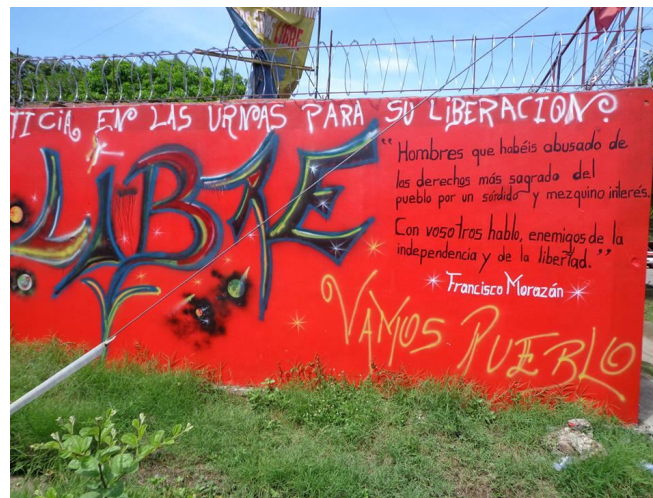 LIBRE
TICIA EN LAS URNAS PARA SU LIBERACION?
LIBRE
"Hombres que habéis abusado de
los derechos más sagrado del
pueblo por un sórdido y mezquino interés.
Con vosotros hablo, enemigos de la
independencia y de la libertad."
Francisco Morazán
VAMOS PUEBLO